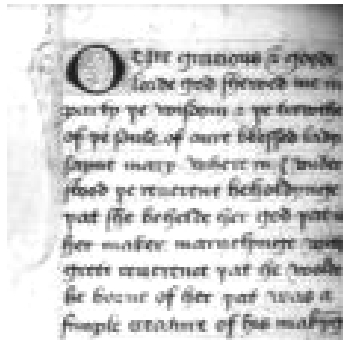 Oure gracious & goode
lorde god shewed me in
party þe wisdom & þe trewthe
of þe soule of oure blessed lady
saynt mary where in I vnder
stood þe reuerent beholdynge
þat she behelde her god þat
her maker maruelynge with
greet reuerence þat he wolde
be borne of her þat was a
symple creature of his makyng